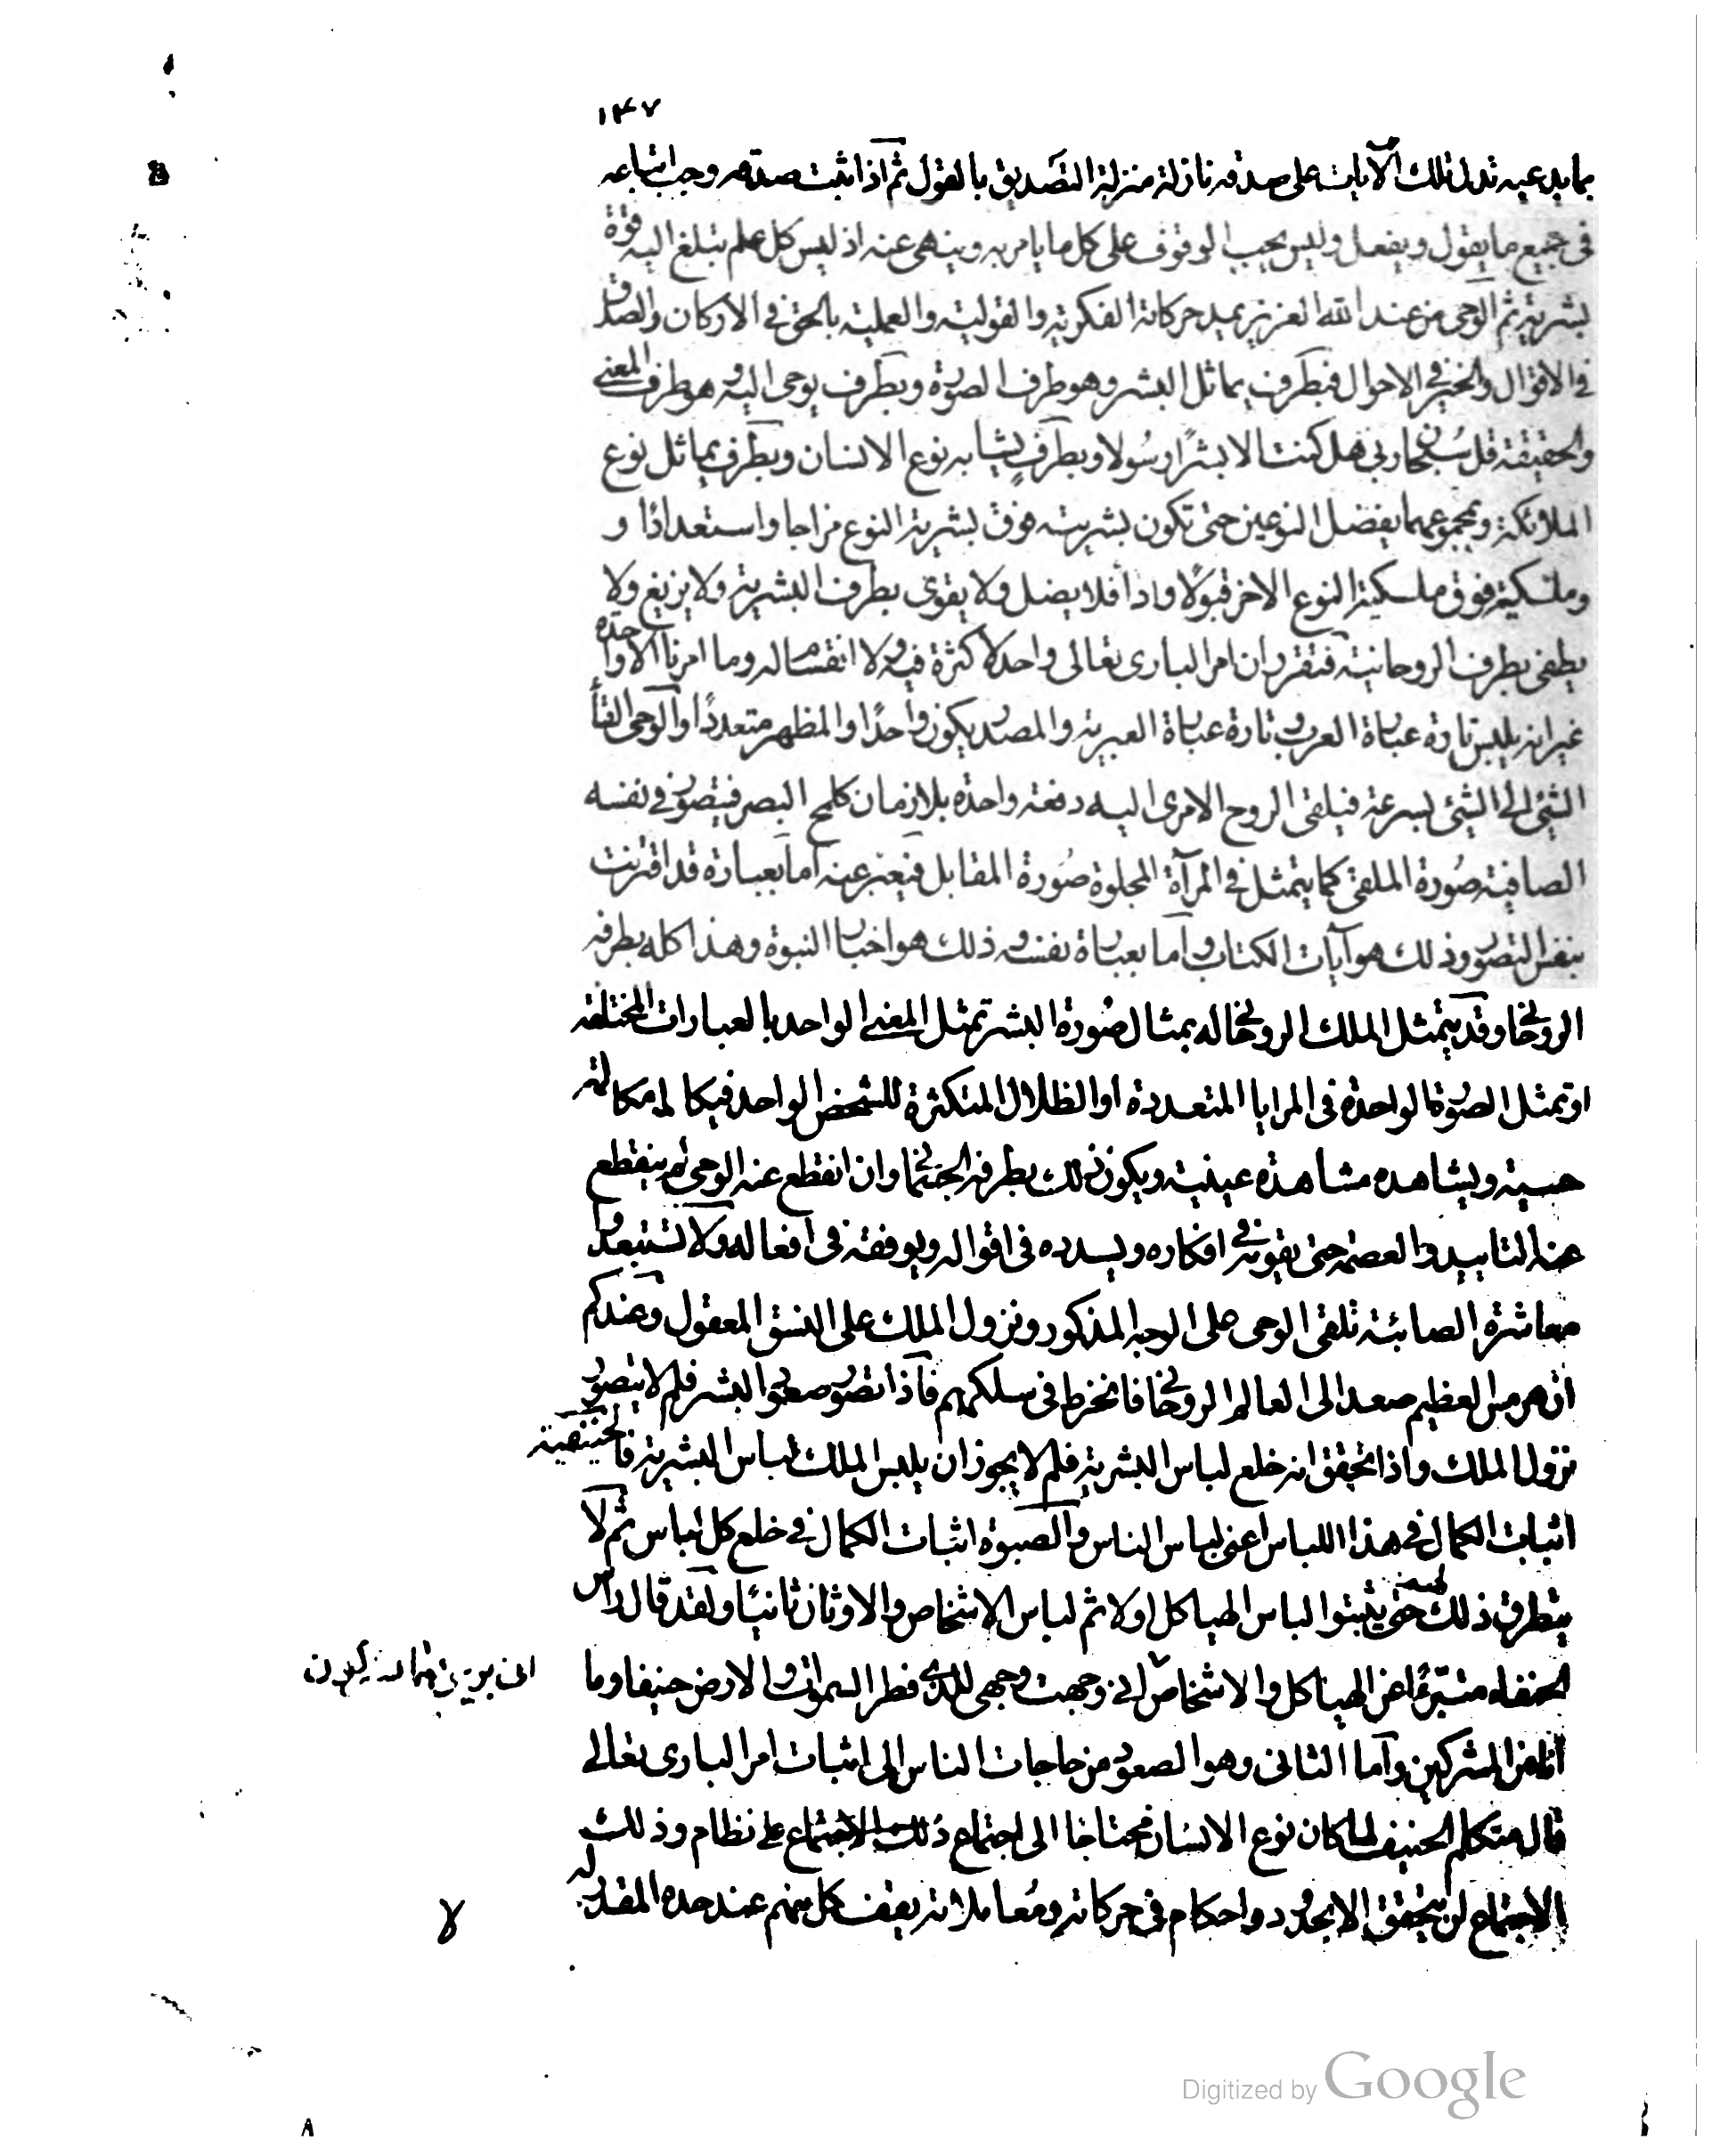 ١٤٧
بما يدعيه تدل تلك الآيات على صدقه نازلة منزلة التصديق بالقول ثم اذا ثبت صدقه وجب اتباعه
فى جميع ما يقول ويفعل وليس يجب الوقوف على كل ما يامر به وينهى عنه اذ ليس كل علم تبلغ اليه قوة
بشرية ثم الوحى من عند الله العزيز يمد حركاته الفكرية والقولية والعملية بالحق فى الافكار والصدق
فى الاقوال والخير فى الاحوال فبطرف يماثل البشر وهو طرف الصورة وبطرف يوحى اليه وهو طرف المعنى
والحقيقة قل سبحان ربى هل كنت الا بشرًا رسولا وبطرف يشابه نوع الانسان وبطرف يماثل نوع
الملائكة وبمجموعهما يفضل النوعين حتى تكون بشريته فوق بشرية النوع مزاجا واستعدادًا و
وملكيته فوق ملكية النوع الاخر قبولًا واداءً فلا يضل ولا يغوى بطرف البشرية ولا يزيغ ولا
يطغى بطرف الروحانية فتقرر ان امر البارى تعالى واحد لا كثرة فيه ولا انقسام له وما امرنا الا واحدة
غير انه يلبس تارة عبارة العرب وتارة عبارة العبرية والمصدر يكون واحدًا والمظهر متعددًا والوحى القاء
الشئ الى الشئ بسرعة فيلقى الروح الامرى اليه دفعة واحدة بلا زمان كلمح البصر فيتصور فى نفسه
الصافية صورة الملقى كما يتمثل فى المرآة المجلوة صورة المقابل فيعبر عنه اما بعبارة قد اقترنت
بنفس التصور وذلك هو آيات الكتاب واما بعبارة نفسه وذلك هو اخبار النبوة وهذا كله بطرفه
الروحانى وقد يتمثل الملك الروحانى له بمثال صورة البشر تمثل المعنى الواحد بالعبارات المختلفة
او تمثل الصورة الواحدة فى المرايا المتعددة او الظلال المتكثرة للشخص الواحد فيكالمه مكالمة
حسية ويشاهده مشاهدة عينية ويكون ذلك بطرفه الجسمانى وان انقطع عنه الوحى لم ينقطع
عنه التاييد والعصمة حتى يقومه فى افكاره ويسدده فى اقواله ويوفقه فى افعاله ولا تستبعدوا
معاشرة الصابئة تلقى الوحى على الوجه المذكور ونزول الملك على النسق المعقول وعندكم
ان هرمس العظيم صعد الى العالم الروحانى فانخرط فى سلكهم فاذا تصور صعود البشر فلم لا يتصور
نزول الملك واذا تحقق انه خلع لباس البشرية فلم لا يجوز ان يلبس الملك لباس البشرية فالحنيفية
اثبات الكمال فى هذا اللباس اعنى لباس الناس والصبوة اثبات الكمال فى خلع كل لباس ثم لا
يتطرق ذلك لهم حتى يثبتوا لباس الهياكل اولا ثم لباس الاشخاص والاوثان ثانيًا ولقد قال راس
الحنفاء متبرئًا عن الهياكل والاشخاص انى وجهت وجهى للذى فطر السموات والارض حنيفا وما
انا من المشركين واما الثانى وهو الصعود من حاجات الناس الى اثبات امر البارى تعالى
قال متكلم الحنيف لما كان نوع الانسان محتاجا الى اجتماع ذلك الاجتماع على نظام وذلك
الاجتماع لن يتحقق الا بحدود واحكام فى حركاته ومعاملاته يقف كل منهم عند حده المقدر له
Digitized by Google